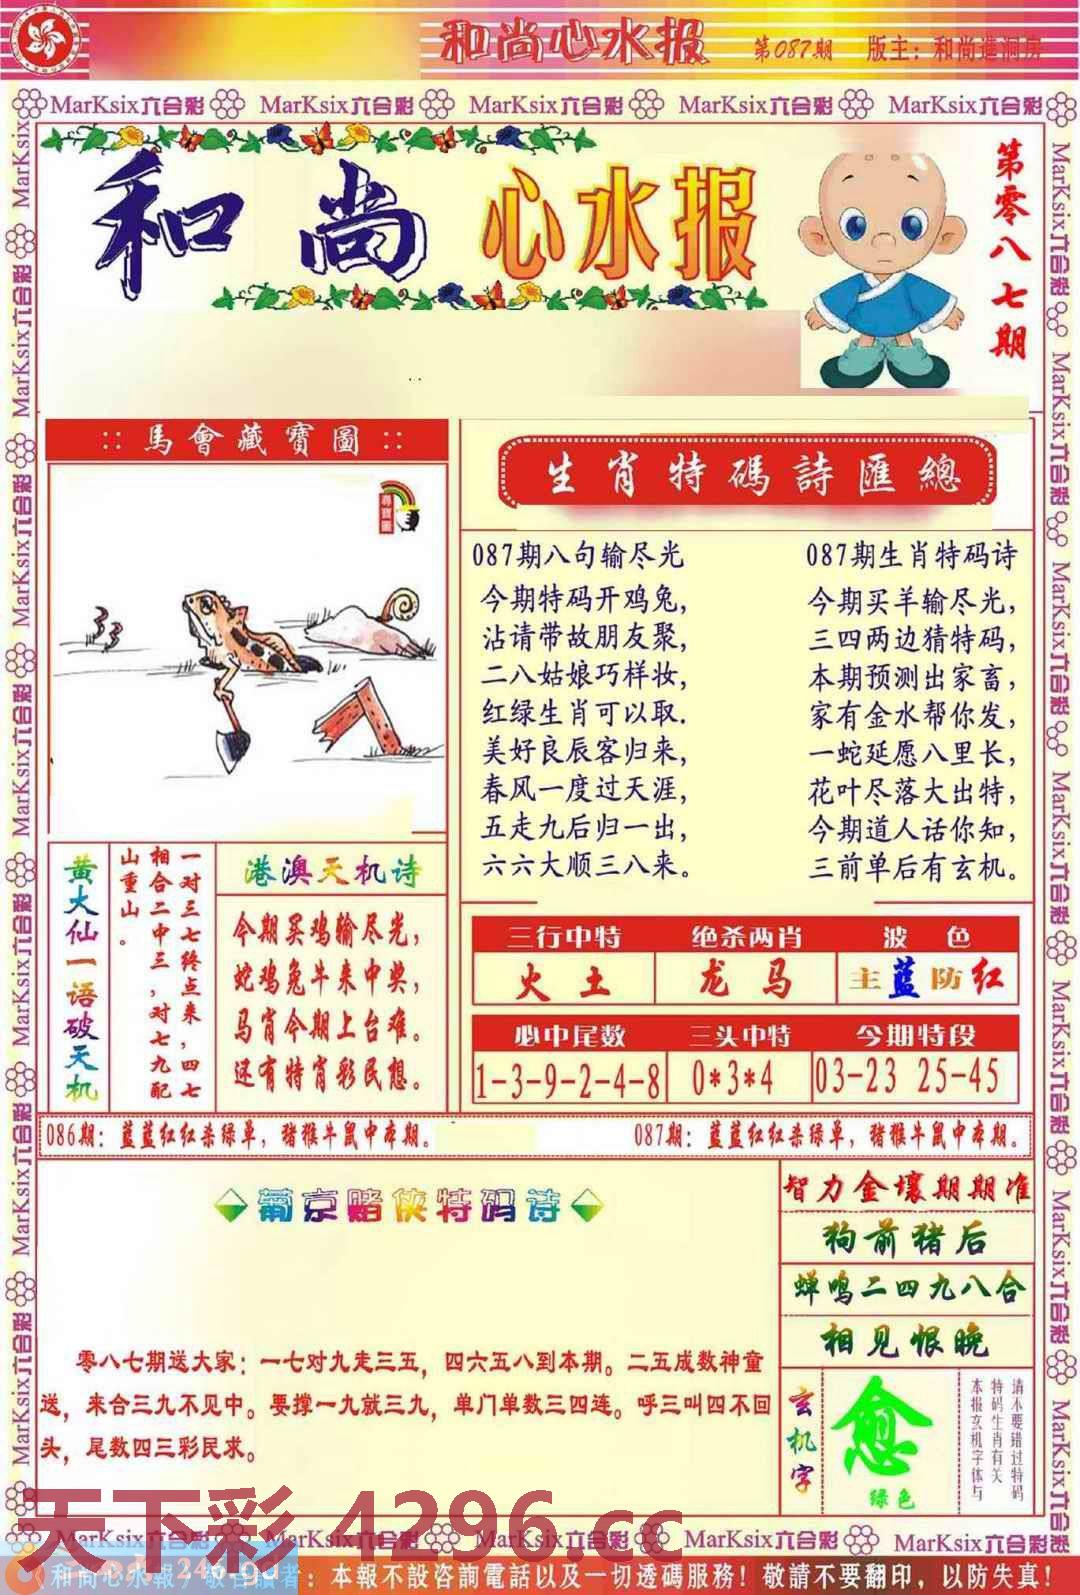 和尚心水报 第087期 版主：和尚進洞房
MarKsix六合彩 MarKsix六合彩 MarKsix六合彩 MarKsix六合彩 MarKsix六合彩
和尚心水报
第零八七期
::馬會藏寶圖::
尋寶圖
生肖特碼詩匯總
087期八句输尽光
今期特码开鸡兔，
沾请带故朋友聚，
二八姑娘巧样妆，
红绿生肖可以取.
美好良辰客归来，
春风一度过天涯，
五走九后归一出，
六六大顺三八来。
087期生肖特码诗
今期买羊输尽光，
三四两边猜特码，
本期预测出家畜，
家有金水帮你发，
一蛇延愿八里长，
花叶尽落大出特，
今期道人话你知，
三前单后有玄机。
黄大仙一语破天机
一对三七终点来，四七
相合二中三，对七九配
山重山。
港澳天机诗
今期买鸡输尽光，
蛇鸡兔牛来中奖，
马肖今期上台难。
还有特肖彩民想。
三行中特 绝杀两肖 波色
火土 龙马 主蓝防红
必中尾数 三头中特 今期特段
1-3-9-2-4-8 0*3*4 03-23 25-45
086期：蓝蓝红红杀绿单，猪猴牛鼠中本期。 087期：蓝蓝红红杀绿单，猪猴牛鼠中本期。
葡京赌侠特码诗
零八七期送大家：一七对九走三五，四六五八到本期。二五成数神童
送，来合三九不见中。要撑一九就三九，单门单数三四连。呼三叫四不回
头，尾数四三彩民求。
智力金壤期期准
狗前猪后
蝉鸣二四九八合
相见恨晚
玄机字
愈
绿色
请不要错过特码
特码生肖有关
本报玄机字体与
天下彩 4296.cc
MarKsix六合彩 MarKsix六合彩 MarKsix六合彩 MarKsix六合彩 MarKsix六合彩
和尚心水報，敬告讀者：本報不設咨詢電話以及一切透碼服務！敬請不要翻印，以防失真！